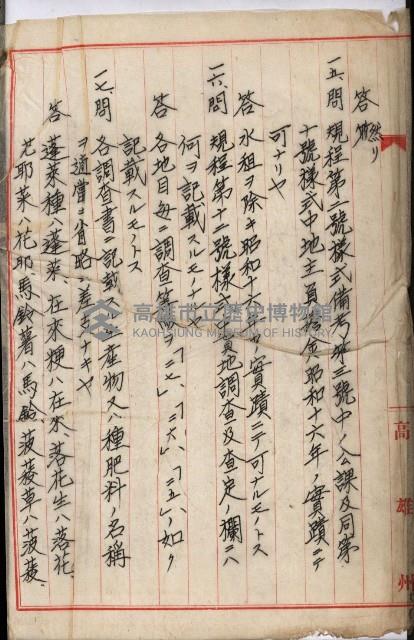 答 然り
一五、問 規程第二號樣式備考第三號中ノ公課及同第
十號樣式中地主負金昭和十六年ノ實蹟ニテ
可ナリヤ
答 水租ヲ除キ昭和十實蹟ニテ可ナルモノトス
一六、問 規程第十二號樣式實地調查及查定ノ欄ニハ
何ヲ記載スルモノナ
答 各地目每ニ調查等「二七」、「二六」、「二五」ノ如ク
記載スルモノトス
一七、問 各調查書ニ記載產物又ハ種肥料ノ名稱
ヲ適當ニ省略差キヤ
答 蓬萊種ハ蓬萊、在來粳ハ在來、落花生ハ落花、
花耶菜ハ花耶、馬鈴薯ハ馬鈴、菠薐草ハ菠薐、
高雄州
高雄市立歷史博物館
KAOHSIUNG MUSEUM OF HISTORY